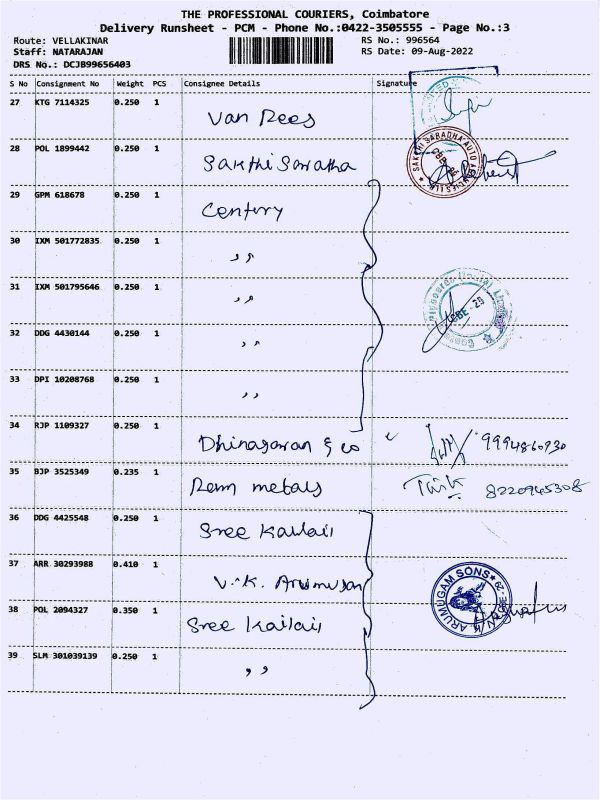 THE PROFESSIONAL COURIERS, Coimbatore
Delivery Runsheet - PCM - Phone No.:0422-3505555 - Page No.:3
Route: VELLAKINAR RS No.: 996564
Staff: NATARAJAN RS Date: 09-Aug-2022
DRS No.: DCJB99656403
S No Consignment No Weight PCS Consignee Details Signature
27 KTG 7114325 0.250 1 Van Rees
28 POL 1899442 0.250 1 Sakthi Saratha
SAKTHI SARADHA AUTO AGENCIES LLP
29 GPM 618678 0.250 1 Century
30 IXM 501772835 0.250 1 ,,
31 IXM 501795646 0.250 1 ,,
CBE - 29
32 DDG 4430144 0.250 1 ,,
33 DPI 10208768 0.250 1 ,,
34 RJP 1109327 0.250 1 Dhinagaran & co 9994860930
35 BJP 3525349 0.235 1 Rem metals 8220945308
36 DDG 4425548 0.250 1 Sree Kailail
37 ARR 30293988 0.410 1 V.K. Arumugan
ARUMUGAM SONS
38 POL 2094327 0.350 1 Sree Kailail
39 SLM 301039139 0.250 1 ,,